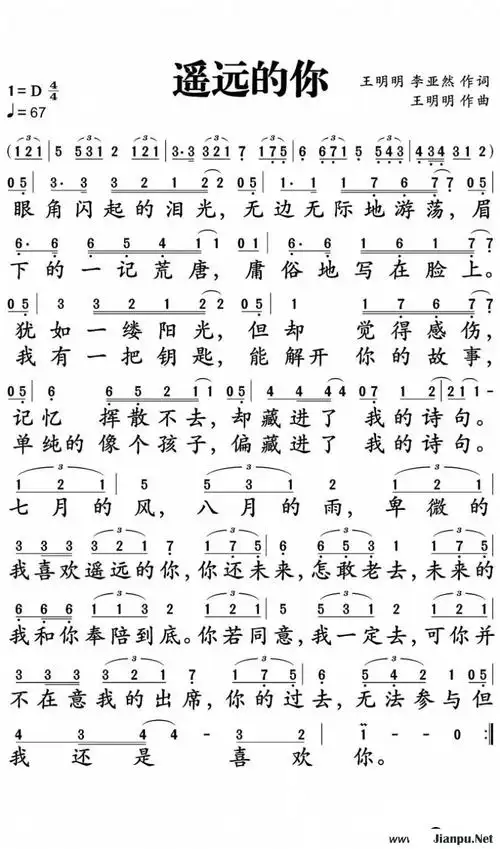 遥远的你
王明明 李亚然 作词
1=D 4/4
王明明 作曲
♩=67
(121 | 5 531 2 | 121 | 3·3 321 7 175 | 6 671 5 543 | 434 312 )
05 | 3· 3 3 2 1 2 2 | 05 | 1· 1 1 7 6 7 7 | 05
眼角闪起的泪光，无边无际地游荡，眉
6· 6 5 4 1 1 | 02 | 5· 6 1 6 1 7 7
下的一记荒唐，庸俗地写在脸上。
05 | 3 3 3 2 1 2 2 | 05 | 1 1 7 6 7 7
犹如一缕阳光，但却 觉得感伤，
我有一把钥匙，能解开 你的故事，
05 | 6 6 5 2 1 1 | 05 | 4 4 4 | 07 1 2 | 2 1 1 -
记忆 挥散不去，却藏进了 我的诗句。
单纯的像个孩子，偏藏进了 我的诗句。
1 2 1 | 5 | 5 3 1 2 | 1 2 1
七月的风，八月的雨，卑微的
3 3 3 3 2 1 7 | 1 7 5 6 6 7 1 5 | 5 4 3 4 | 1 7 5
我喜欢遥远的你，你还未来，怎敢老去，未来的
6 6 6 7 1 3 2 | 1 2 1 5 | 5 3 1 2 | 1 2 1
我和你奉陪到底。你若同意，我一定去，可你并
3 3 3 3 2 1 7 | 1 7 5 6 6 7 1 5 | 5 4 3 4 | 05
不在意我的出席，你的过去，无法参与但
4 3 4 4 - 3 2 | 1 - - 0 :||
我还是喜欢你。
Jianpu.Net